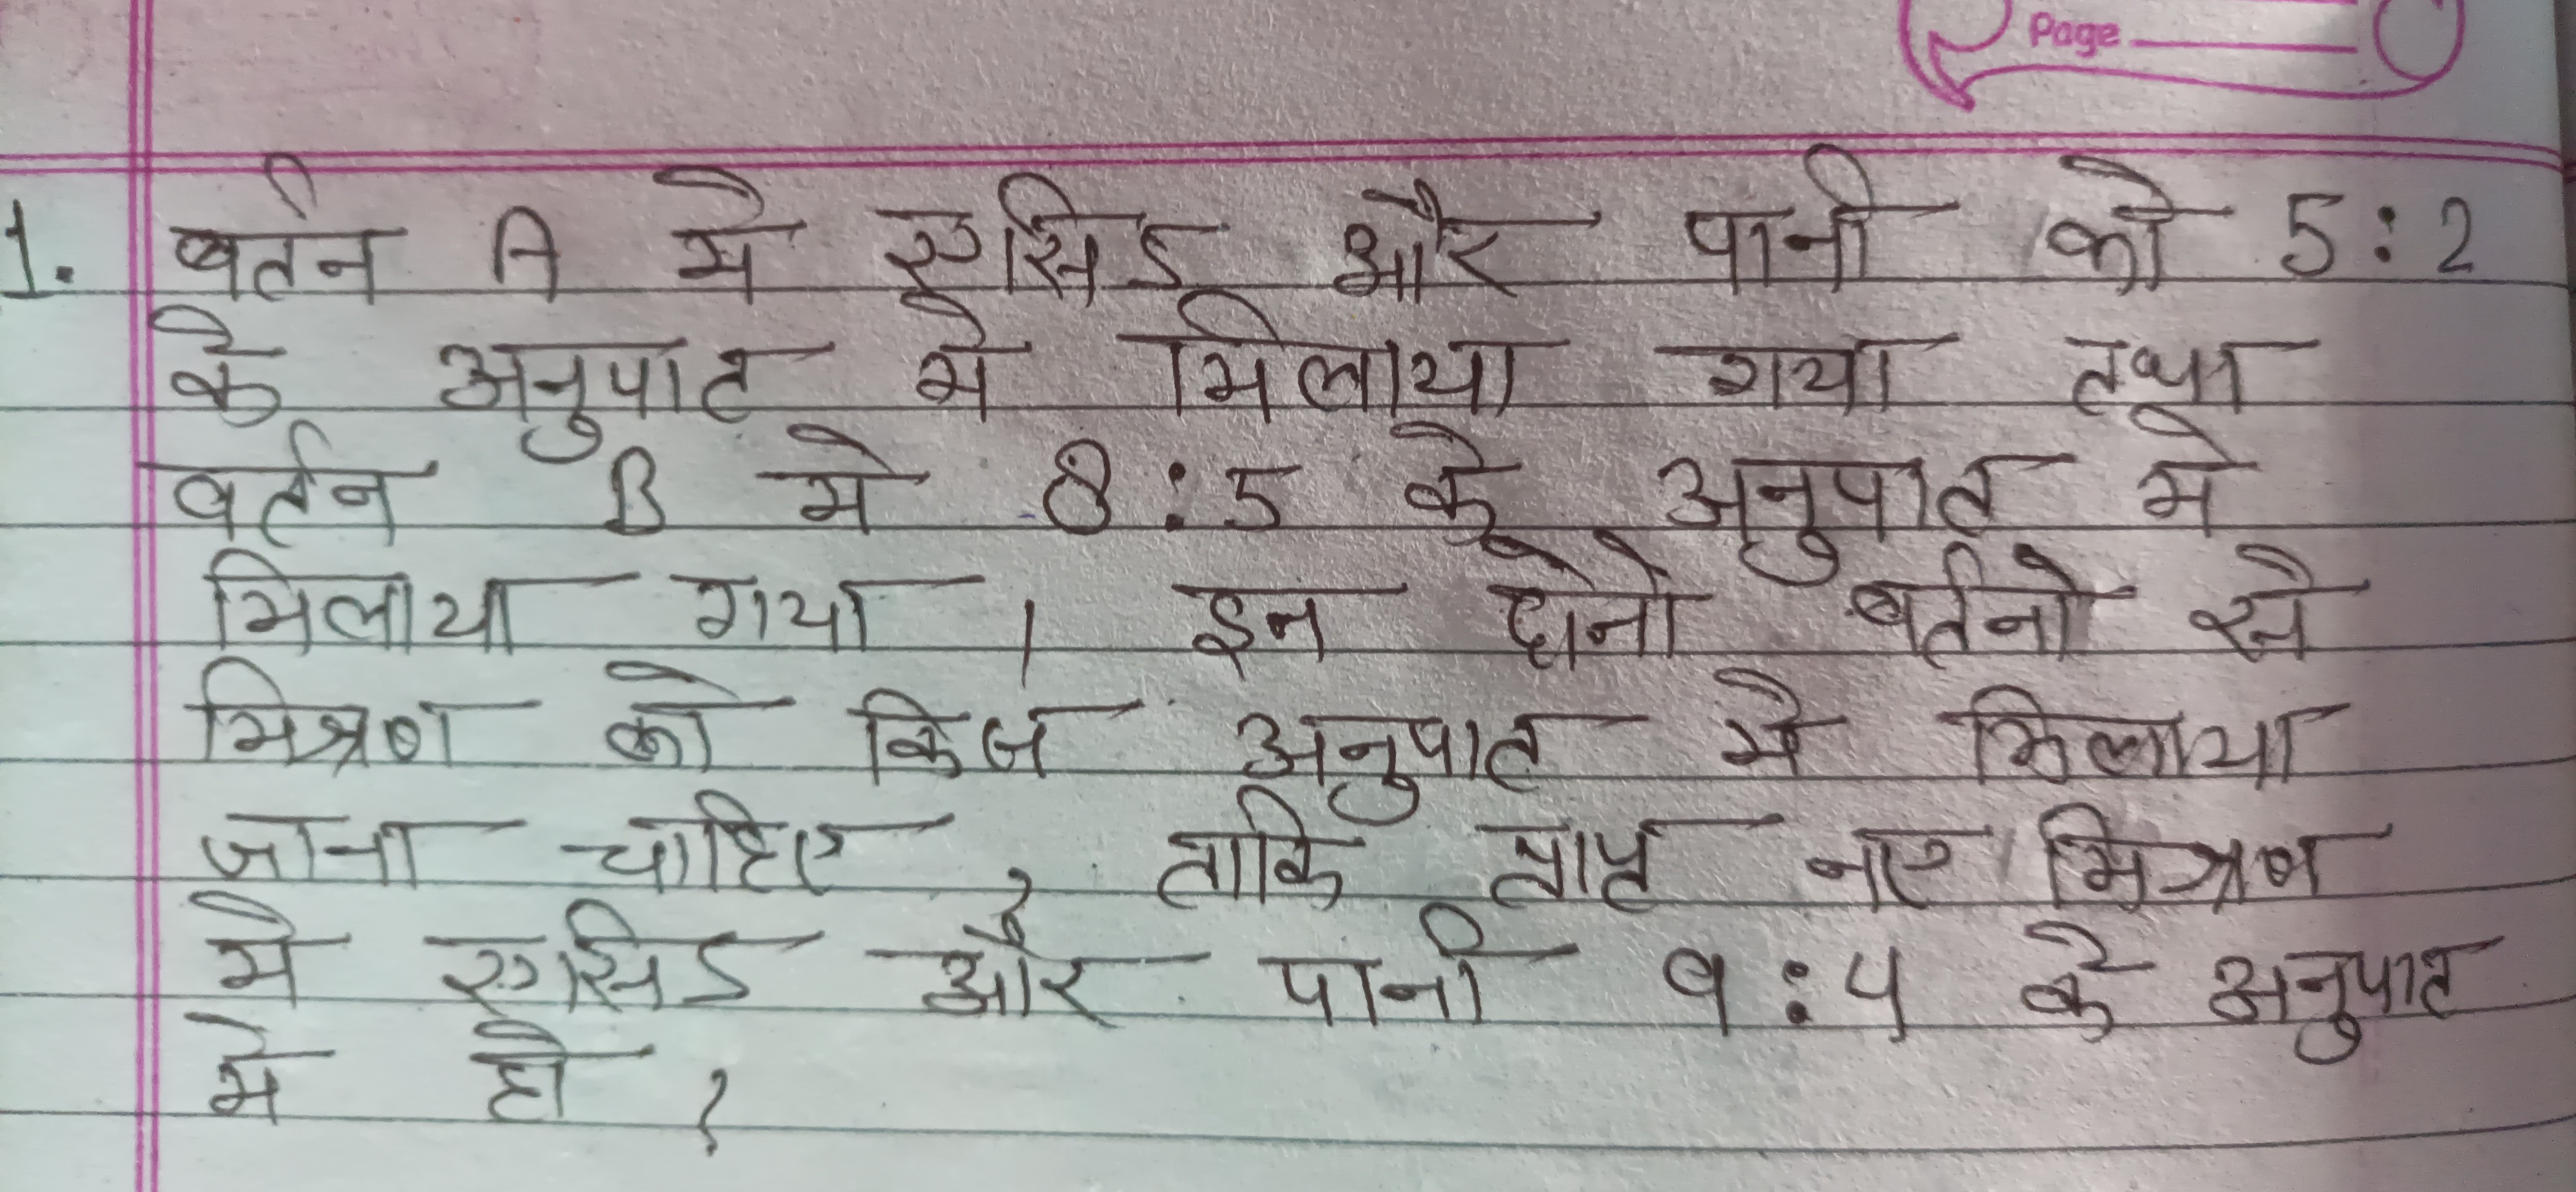 Page
1. बर्तन A मे एसिड और पानी को 5:2
के अनुपात मे मिलाया गया तथा
बर्तन B मे 8:5 के अनुपात मे
मिलाया गया । इन दोनो बर्तनो से
मिश्रण को किस अनुपात मे मिलाया
जाना चाहिए , ताकि प्राप्त नए मिश्रण
मे एसिड और पानी 9:4 के अनुपात
मे हो ?